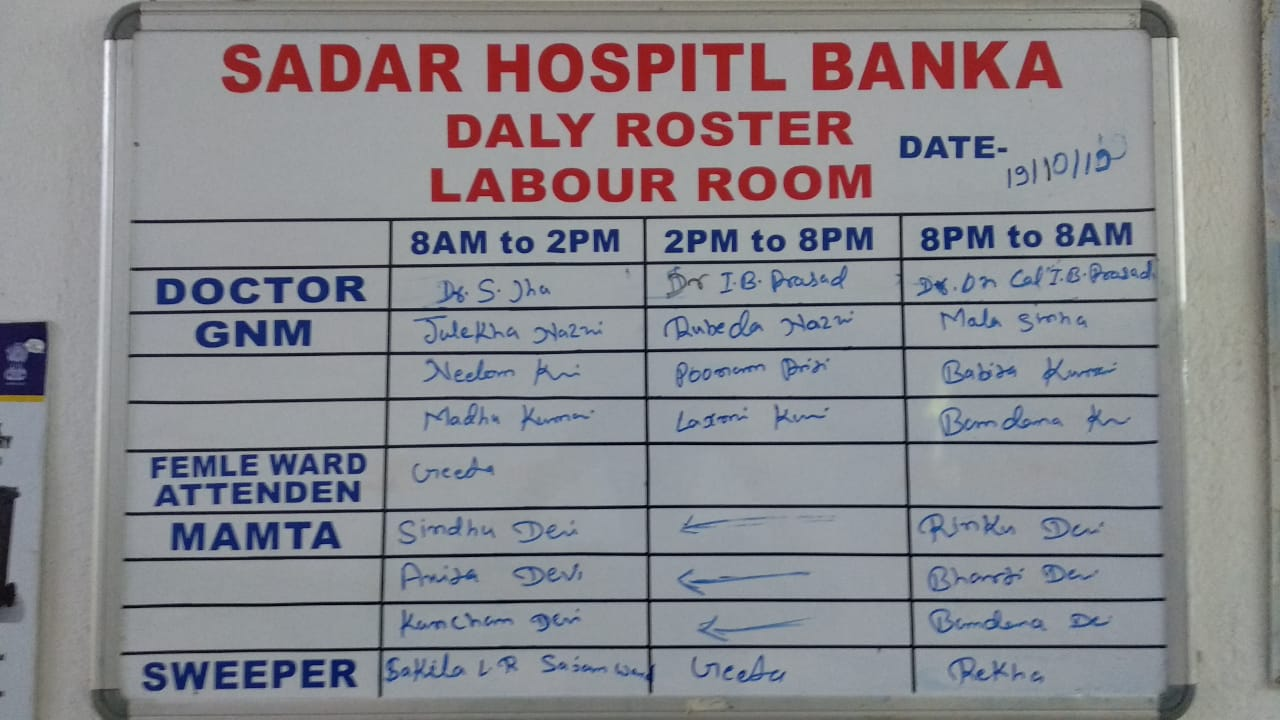 SADAR HOSPITL BANKA
DALY ROSTER
DATE- 19/10/19
LABOUR ROOM
8AM to 2PM 2PM to 8PM 8PM to 8AM
DOCTOR Dr. S. Jha Dr I.B. Prasad Dr. On Cal I.B. Prasad
GNM Julekha Nazni Rubeda Nazni Mala Sinha
Neelam Kri Poonam Babita Kumari
Madha Kumari Laxmi Kumi Bandana Kr
FEMLE WARD
ATTENDEN Geeta
MAMTA Sindhu Devi ← Rinku Devi
Anita Devi ← Bharti Devi
Kanchan Devi ← Bandana De
SWEEPER Sakila L.R Geeta Rekha